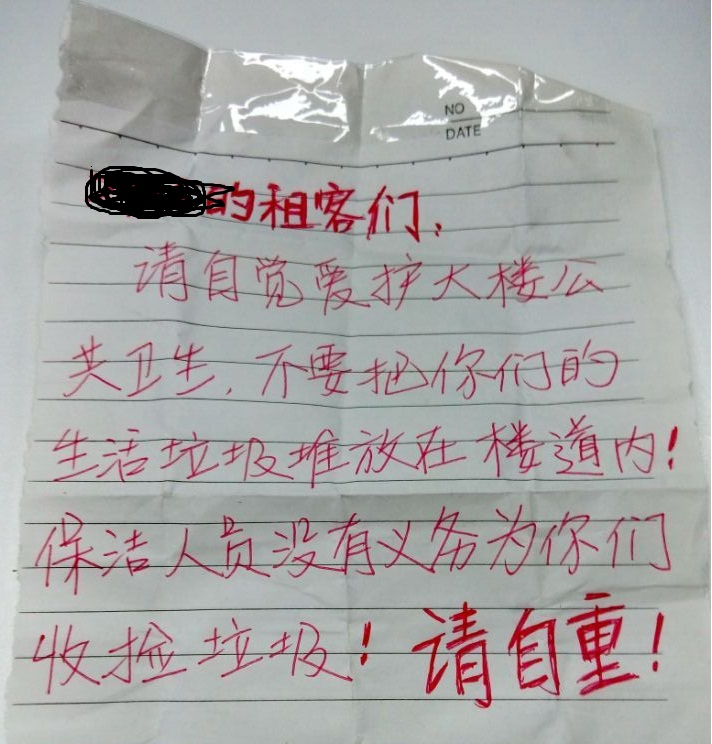 NO
DATE
的租客们，
请自觉爱护大楼公
共卫生，不要把你们的
生活垃圾堆放在楼道内！
保洁人员没有义务为你们
收捡垃圾！请自重！